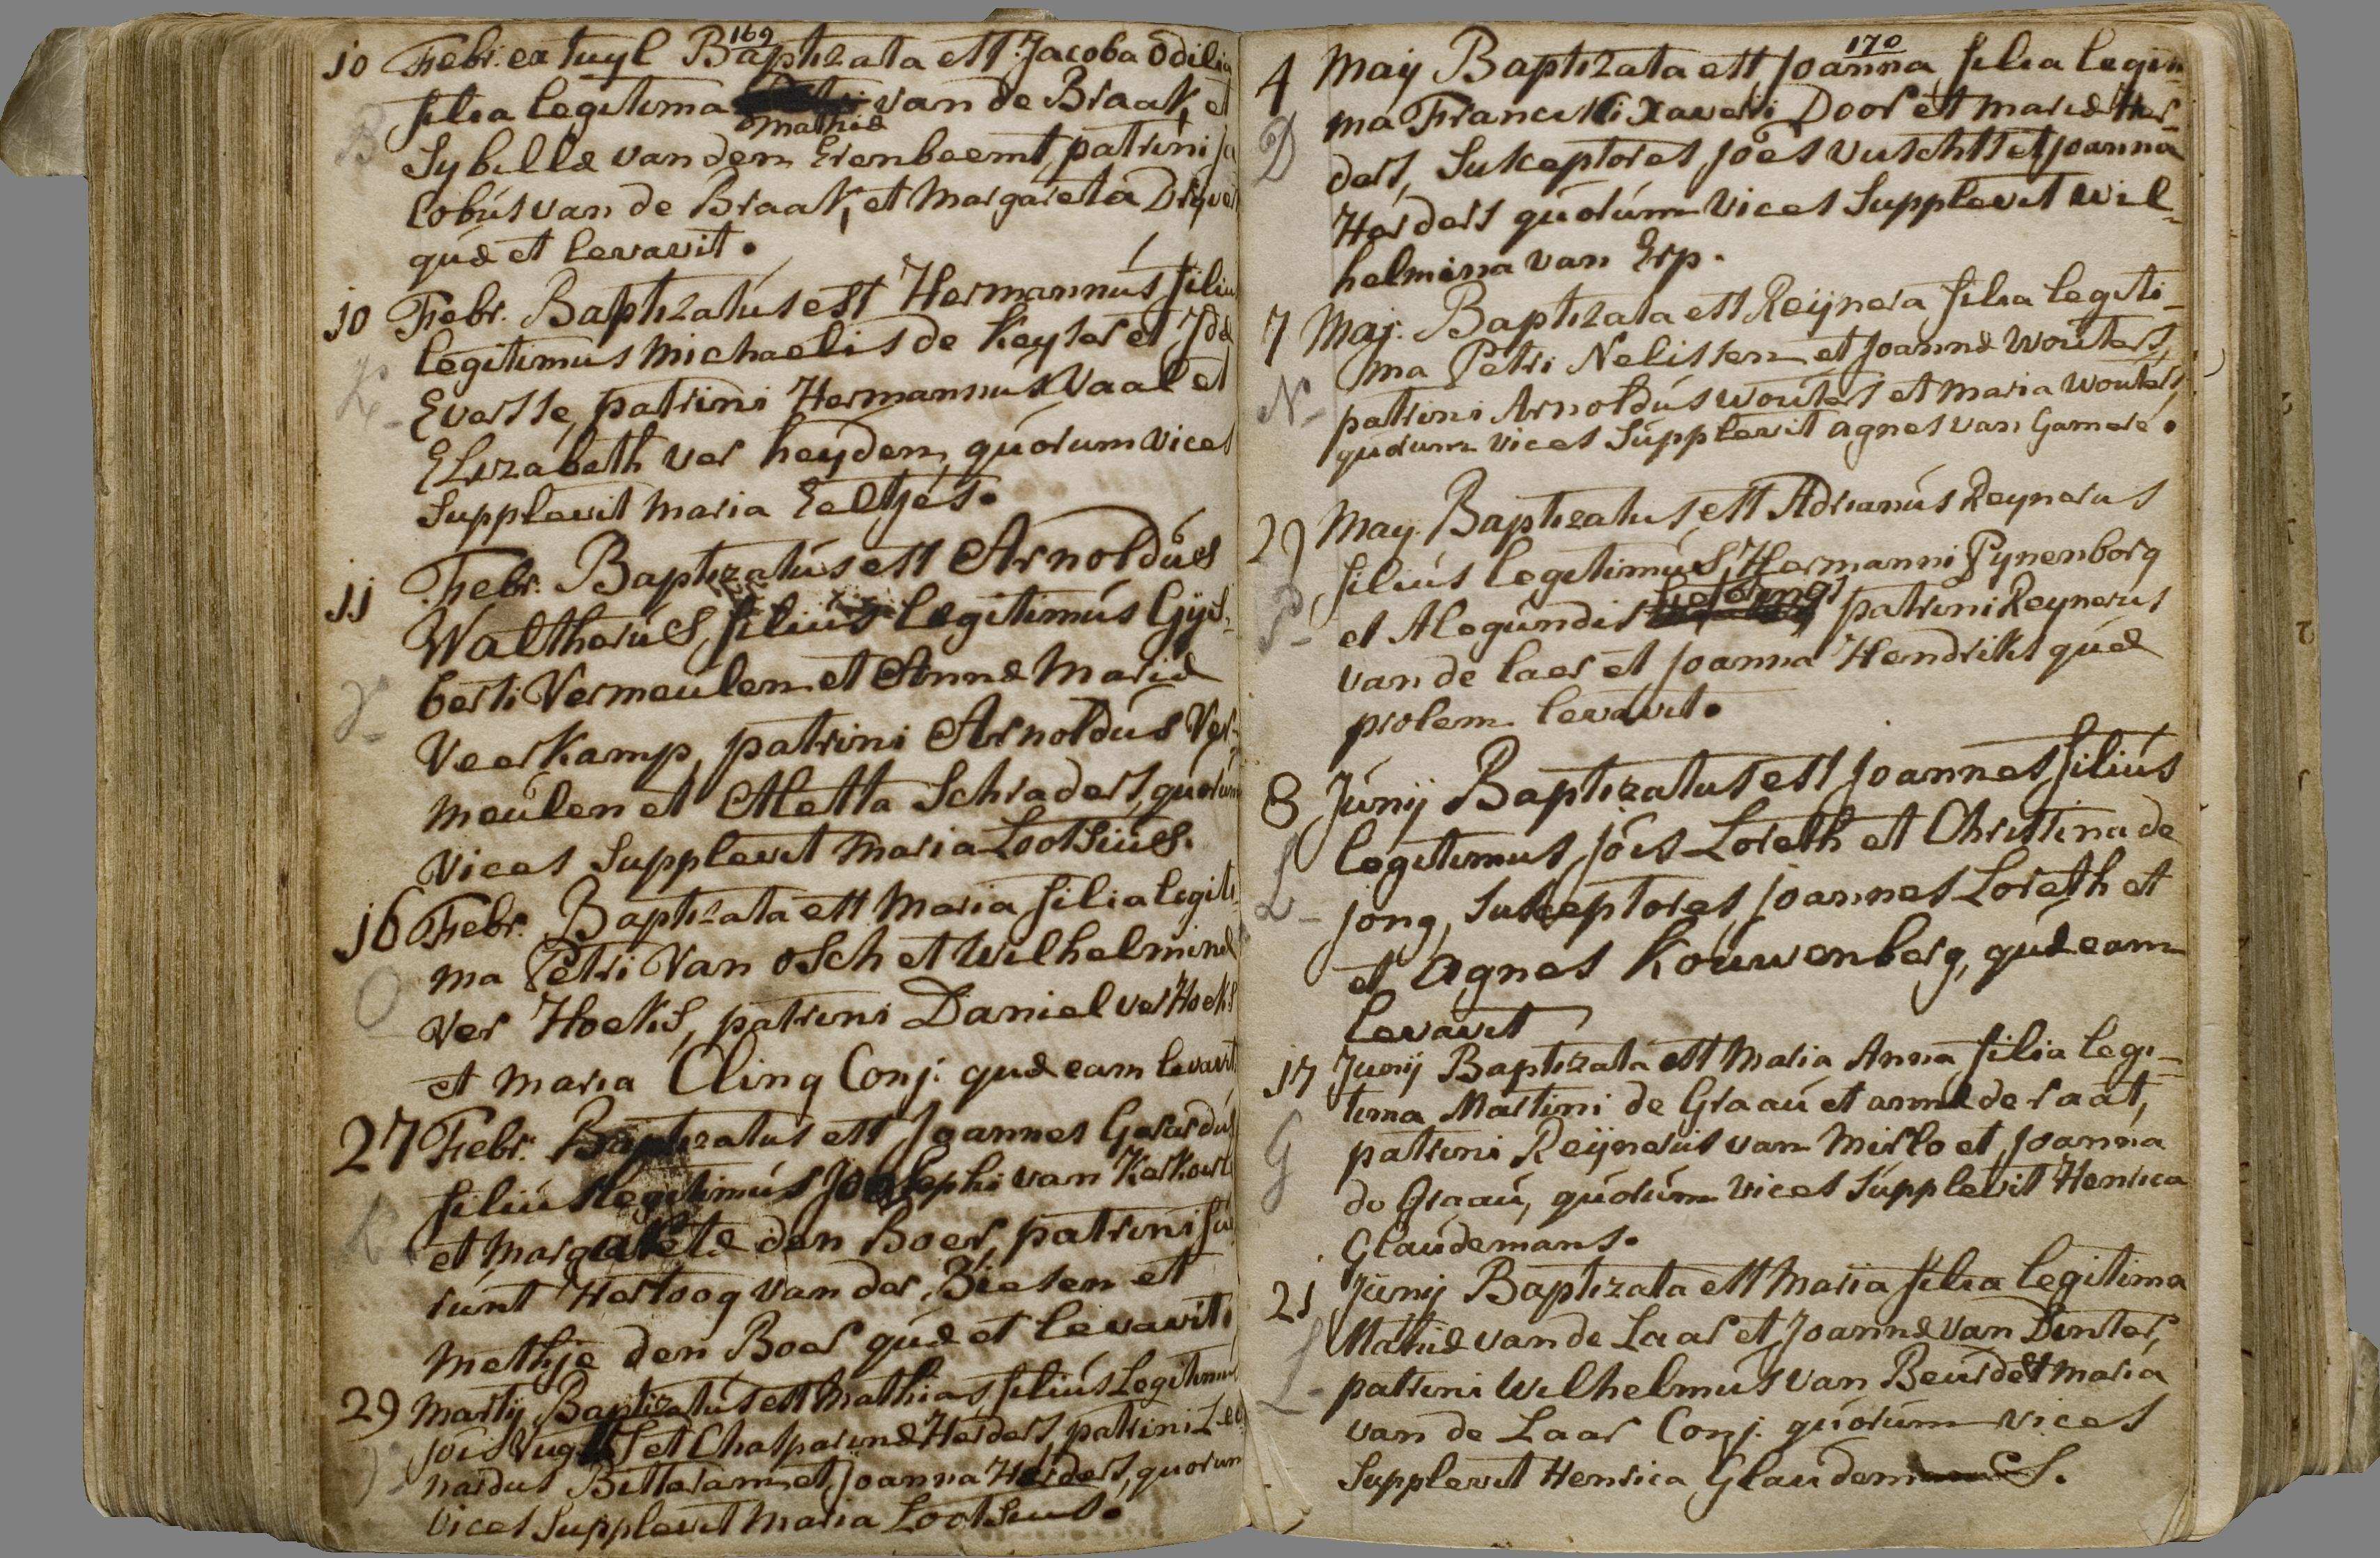 169
10 Febr. ex tuyl Baptizata est Jacoba Odilia
filia legitima Mathiæ van de Braak, et
B Sybillæ van den Erenbeemt, patrini Ja
cobús van de Braak, et Margareta
quæ et levavit.
10 Febr. Baptizatús est Hermannús filiu
legitimús Michaelis de Keyser et Idæ
K- Eversse, patrini Hermannus Waal et
Elizabeth ver heyden, quórum vices
Supplevit Maria Eeltjes.
11 Febr. Baptizatús est Arnoldús
Waltherús, filiús legitimús Gys-
berti Vermeulen et Annæ Mariæ
V- Veerkamp, patrini Arnoldús Ver-
meúlen et Aletta Schraders, quorúm
vices Supplevit Maria Lootsiús.
16 Febr. Baptizata est Maria filia legiti-
ma Petri Van Osch et Wilhelminæ
O Ver Hoeks, patrini Daniel ver Hoeks
et Maria Cling Conj: quæ eam levavit
27 Febr. Baptizatus est Joannes Gerardús
filiús legitimús Josephi van
K et Margaretæ den Boer, patrini fú
rúnt Hertoog van der Biesen et
Methje den Boer qúæ et levavit.
29 Martij Baptizatús est Mathias, filiús Legitimus
Jóis et Chasparinæ Herders, patrini Leo
V- nardus Bitteram et Joanna Herders, quorum
vices Supplevit Maria Lootsius.
170
4 May Baptizata est Joanna filia legiti-
ma Francisci Xaverii Door et Mariæ Her-
D ders, Susceptores Jóes Vuschts et Joanna
Herders quórúm vices Supplevit Wil-
helmina van Erp.
7 Maj. Baptizata est Reijnera filia legiti-
ma Petri Nelissen et Joannæ Woúters,
N- patrini Arnoldús Woúters et Maria Wouters,
quórum vices Súpplevit Agnes van Gameré.
29 May. Baptizatus est Adrianús Reynerus
filiús legitimús Hermanni Pynenborg
P- et Alegúndis patrini Reynerus
van de Laer et Joanna Hendriks qúæ
prolem levavit.
8 Júnij Baptizatus est Joannes filiús
legitimus Jóis Loreth et Christina de
L- jong, Susceptores Joannes Loreth et
et Agnes Koúwenberg, qúæ eam
levavit
17 Junij Baptizata est Maria Anna filia legi-
tima Martini de Graaú et annæ de raat,
G patrini Reijnerús van Mirlo et Joanna
de Graaú, quórúm vices Súpplevit Henrica
Glaúdemans.
21 Júnij Baptizata est Maria filia legitima
Matiæ van de Laar et Joannæ van Dinter,
L- patrini Wilhelmús van Beúrdet Maria
van de Laar Conj. quórúm vices
Supplevit Henrica Glaudemans.